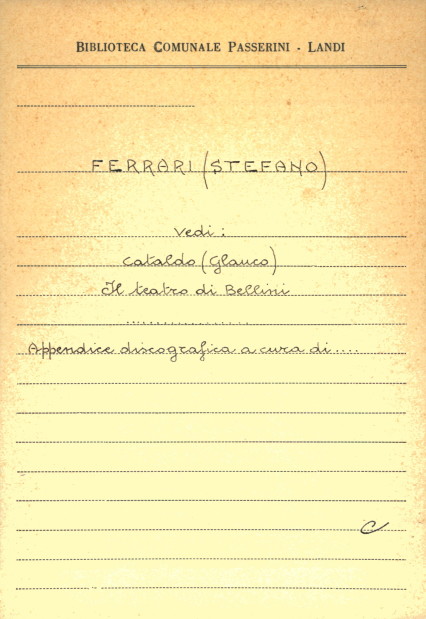 BIBLIOTECA COMUNALE PASSERINI - LANDI
FERRARI (STEFANO)
Vedi:
Cataldo (Glauco)
Il teatro di Bellini
..................
Appendice discografica a cura di ....
C